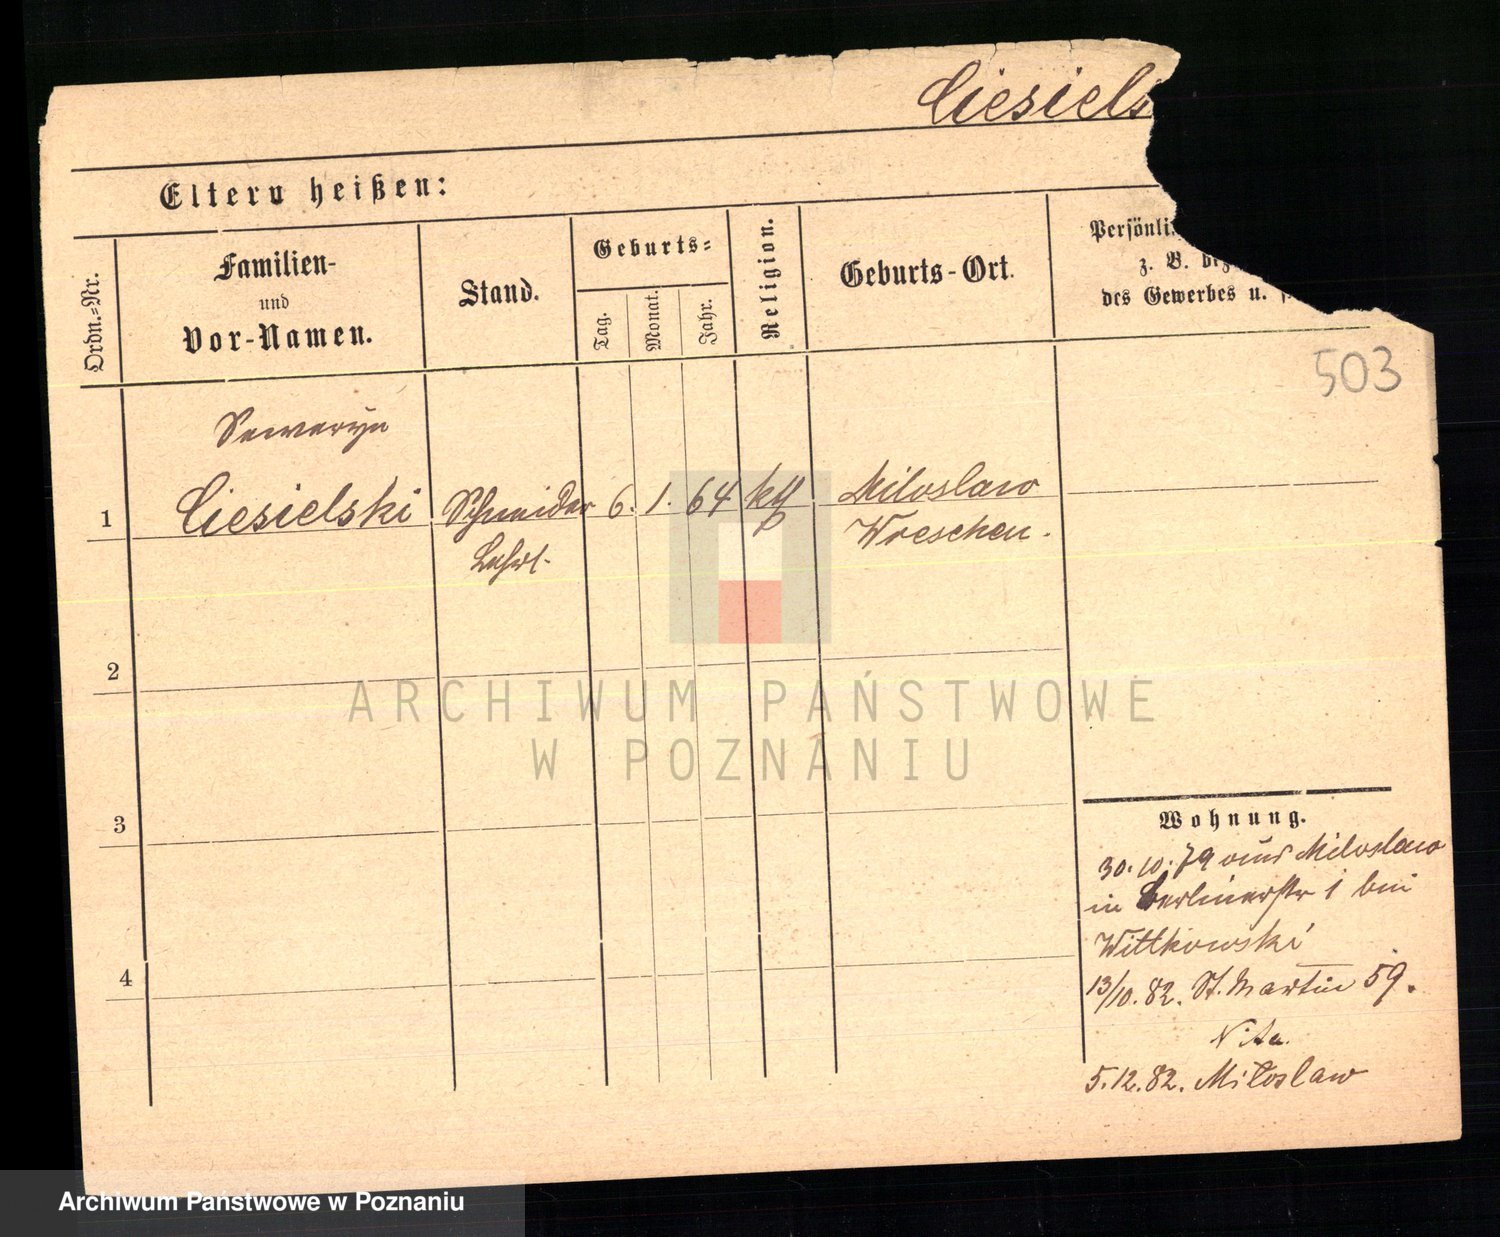 Ciesiels
Eltern heißen:
Ordn.-Nr.
Familien-
und
Vor-Namen.
Stand.
Geburts-
Tag.
Monat.
Jahr.
Religion.
Geburts-Ort.
Persönli
z. B. bez
des Gewerbes u.
503
Seweryn
1 Ciesielski Schneider 6. 1. 64 kth Miloslaw
Lehrl. Wreschen.
2
3
4
Wohnung.
30.10.79 aus Miloslaw
in Berlinerstr 1 bei
Wittkowski
13/10.82. St. Martin 59.
5.12.82. Miloslaw
ARCHIWUM PAŃSTWOWE
W POZNANIU
Archiwum Państwowe w Poznaniu